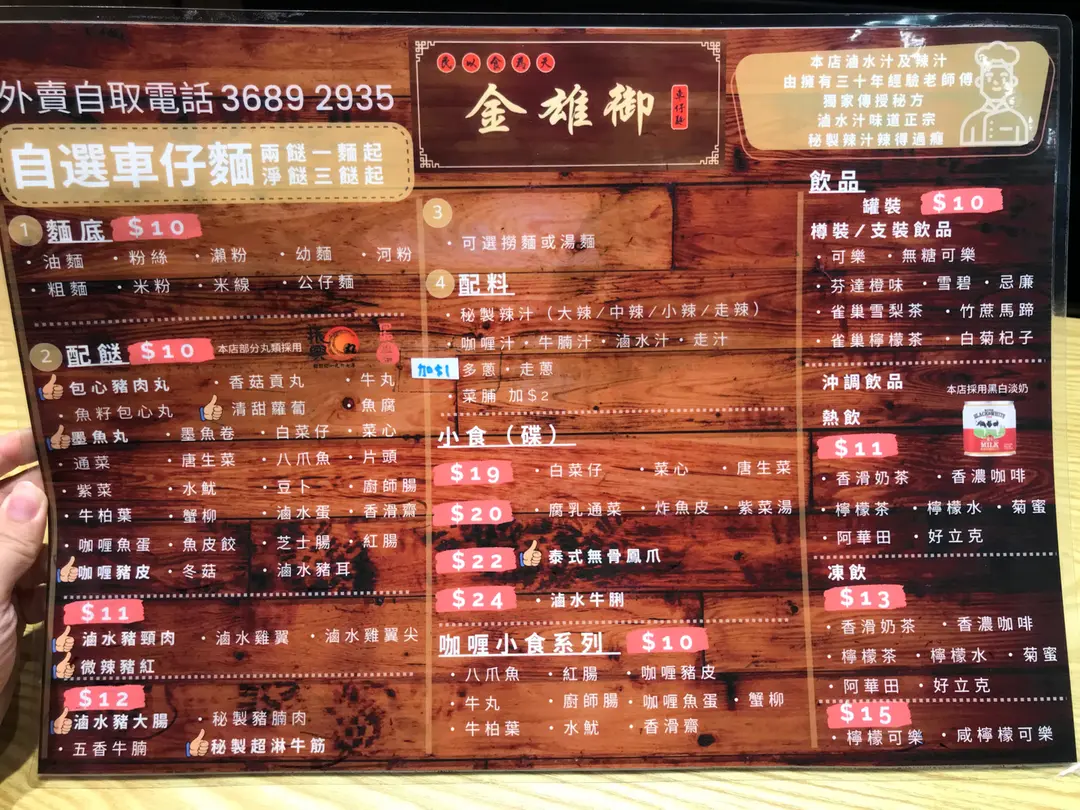 外賣自取電話 3689 2935
自選車仔麵 兩餸一麵起
淨餸三餸起
民以食為天
金雄御 車仔麵
本店滷水汁及辣汁
由擁有三十年經驗老師傅
獨家傳授秘方
滷水汁味道正宗
秘製辣汁辣得過癮
1 麵底 $10
·油麵 ·粉絲 ·瀨粉 ·幼麵 ·河粉
·粗麵 ·米粉 ·米線 ·公仔麵
2 配餸 $10 本店部分丸類採用
包心豬肉丸 ·香菇貢丸 ·牛丸
·魚籽包心丸 清甜蘿蔔 ·魚腐
墨魚丸 ·墨魚卷 ·白菜仔 ·菜心
·通菜 ·唐生菜 ·八爪魚 ·片頭
·紫菜 ·水魷 ·豆卜 ·廚師腸
·牛柏葉 ·蟹柳 ·滷水蛋 ·香滑齋
·咖喱魚蛋 ·魚皮餃 ·芝士腸 ·紅腸
咖喱豬皮 ·冬菇 ·滷水豬耳
$11
滷水豬頸肉 ·滷水雞翼 ·滷水雞翼尖
微辣豬紅
$12
滷水豬大腸 ·秘製豬腩肉
·五香牛腩 秘製超淋牛筋
3
·可選撈麵或湯麵
4 配料
·秘製辣汁（大辣/中辣/小辣/走辣）
·咖喱汁·牛腩汁·滷水汁·走汁
加$1 多蔥·走蔥
·菜脯 加$2
小食（碟）
$19 ·白菜仔 ·菜心 ·唐生菜
$20 ·腐乳通菜 ·炸魚皮 ·紫菜湯
$22 泰式無骨鳳爪
$24 ·滷水牛脷
咖喱小食系列 $10
·八爪魚 ·紅腸 ·咖喱豬皮
·牛丸 ·廚師腸 ·咖喱魚蛋 ·蟹柳
·牛柏葉 ·水魷 ·香滑齋
飲品
罐裝 $10
樽裝/支裝飲品
·可樂 ·無糖可樂
·芬達橙味 ·雪碧 ·忌廉
·雀巢雪梨茶 ·竹蔗馬蹄
·雀巢檸檬茶 ·白菊杞子
沖調飲品 本店採用黑白淡奶
BLACK&WHITE
MILK
熱飲
$11
·香滑奶茶 ·香濃咖啡
·檸檬茶 ·檸檬水 ·菊蜜
·阿華田 ·好立克
凍飲
$13
·香滑奶茶 ·香濃咖啡
·檸檬茶 ·檸檬水 ·菊蜜
·阿華田 ·好立克
$15
·檸檬可樂 ·咸檸檬可樂